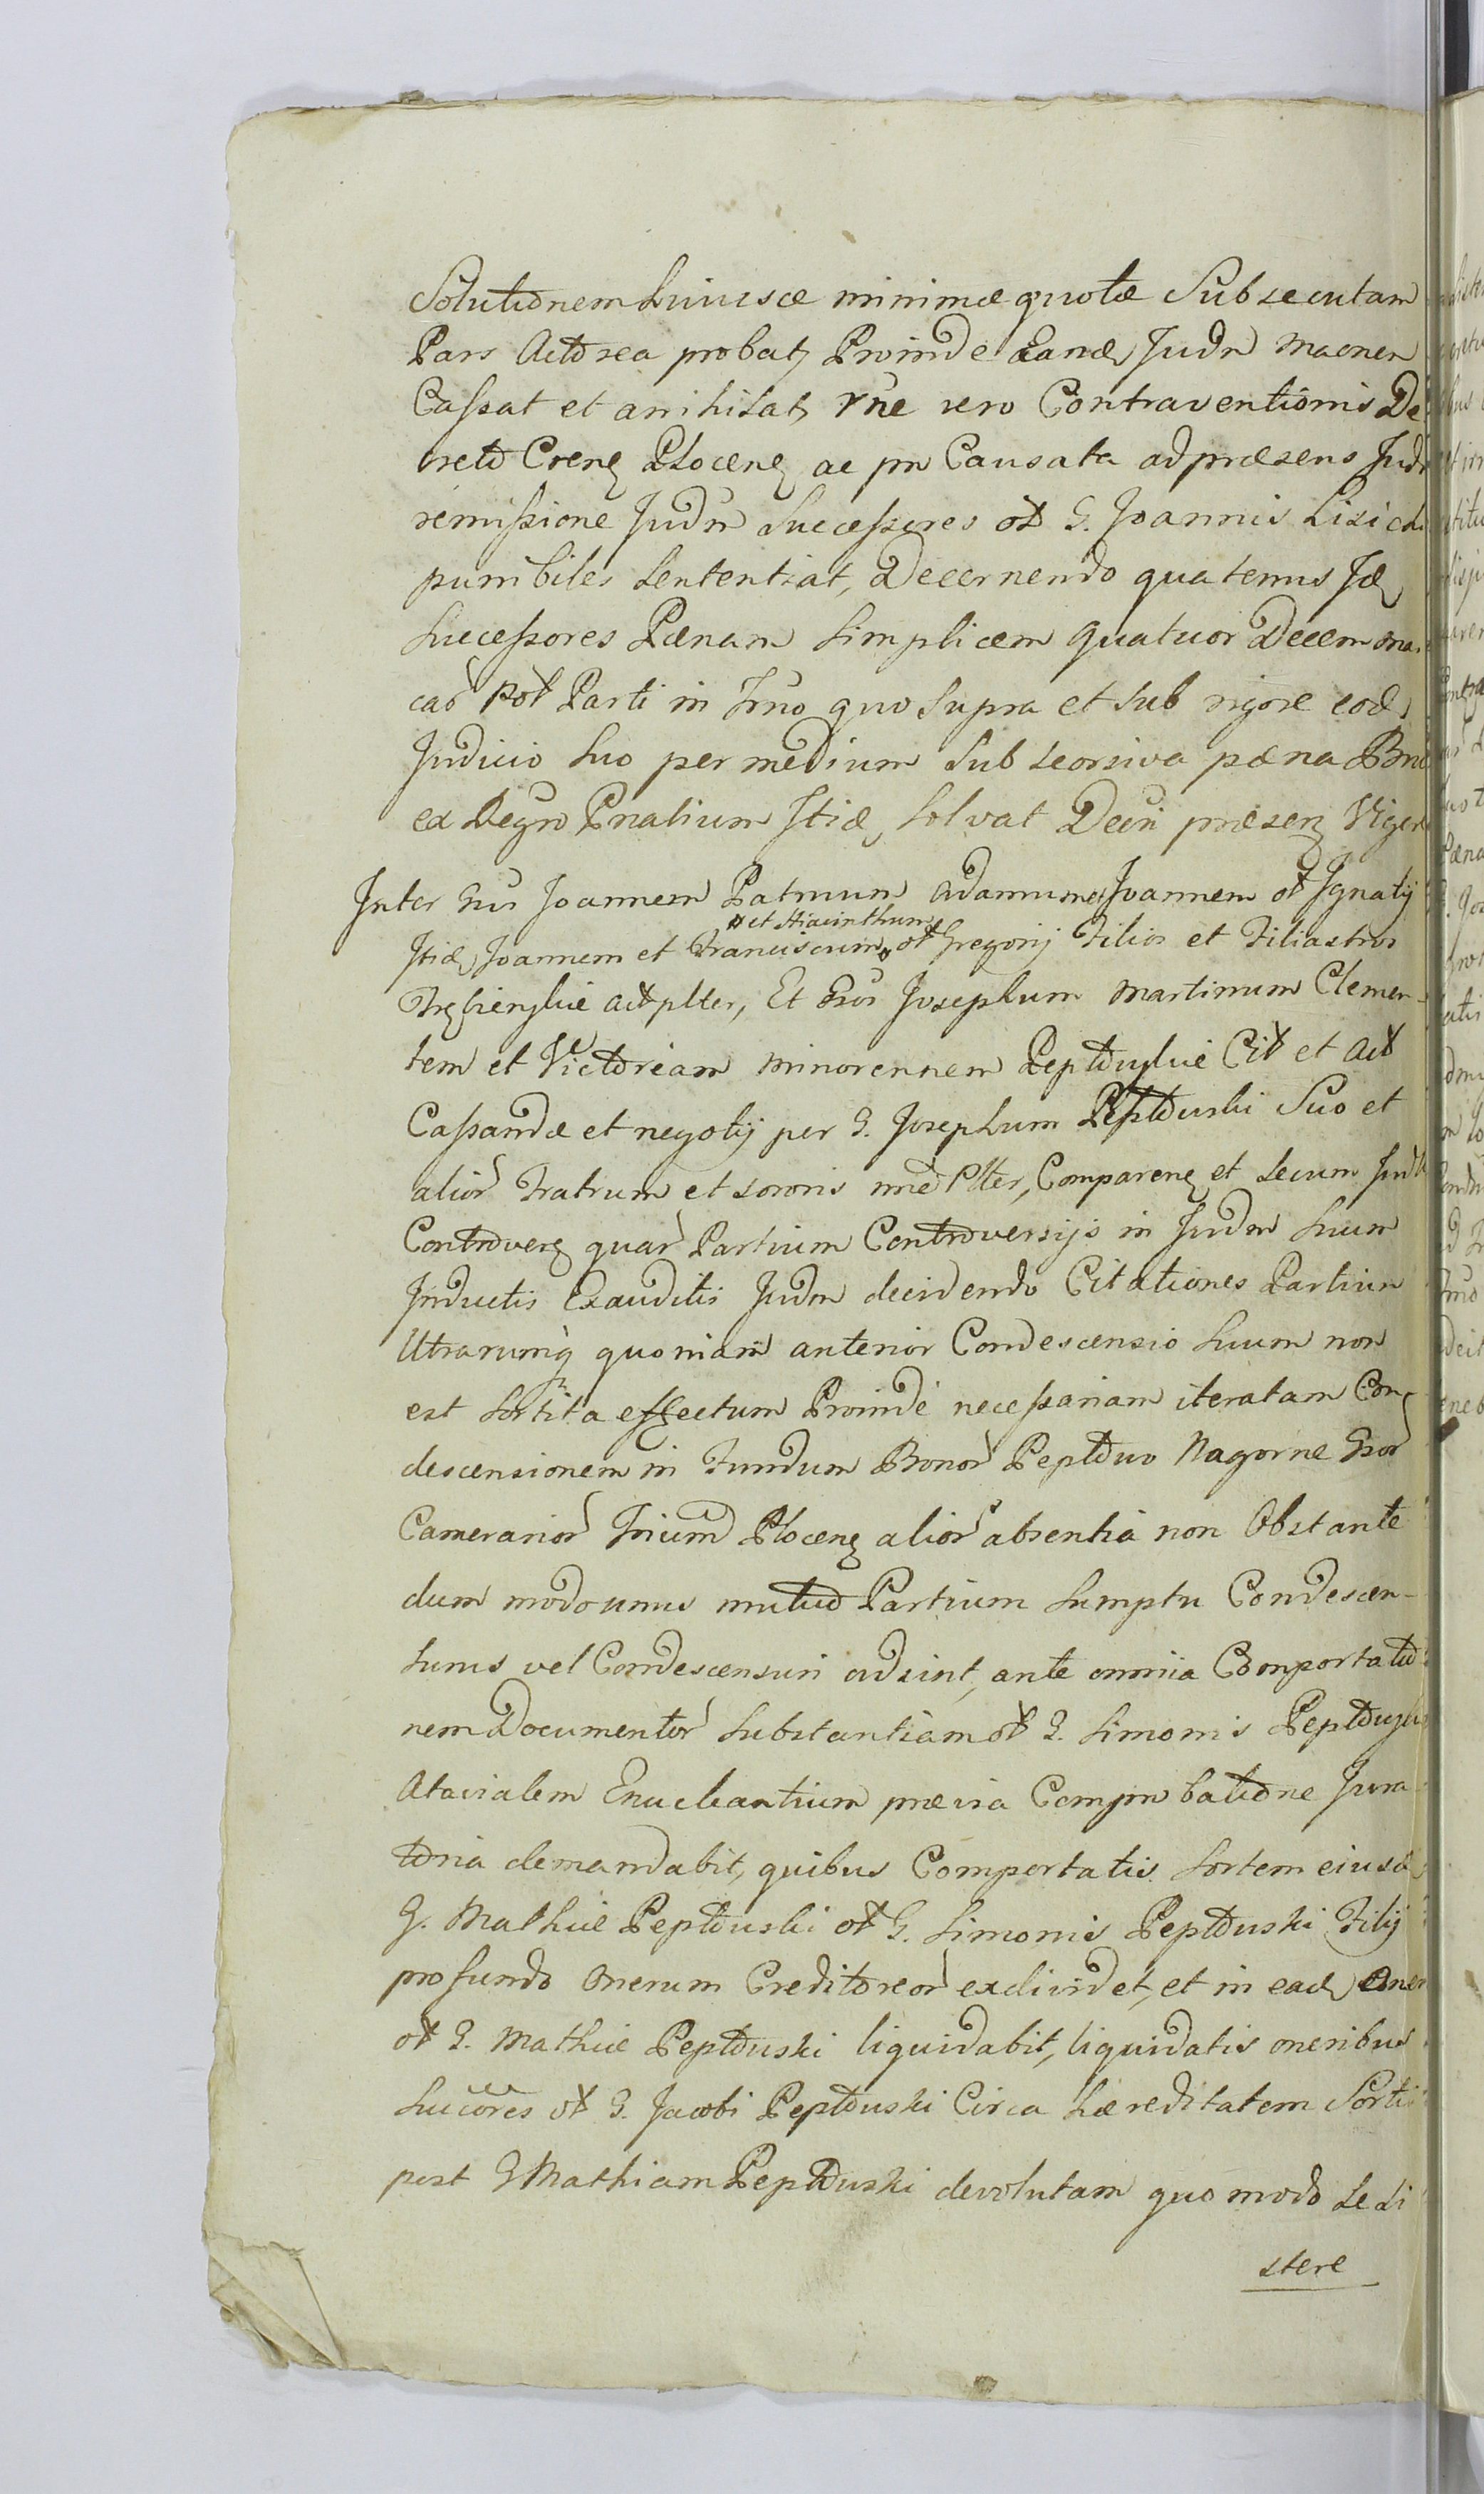 Solutionem huiusce minimæ quotæ Subsecutam
Pars Actorea probat, Proinde Eand Judm
Cassat et anihilat, rne vero Contraventionis De
creto Crens Plocens ac pro Causata ad præsens Jud
remissione Judm Successores ol G. Joannis Lisicki
punibiles Sententiat, Decernendo quatenus Jid
Successores Pænam Simplicem quatuor Decem mar
car Parti in Fmo quo Supra et sub rigore eod
Judicio Suo per medium Sub seorsiva pæna Bnis
ex Regno Pnalium Itid, Solvat Decti præsens Vigore
Inter Gsos Joannem Patruum Adamum et Joannem ol Ignatij
Itid Joannem et Franciscum et Hiacinthum ol Gregorij Filios et Filiastros
Trzcienskie act pltter, Et Gsos Josephum Martinum Clemen-
tem et Victoriam minorennem Peptowskie Cit et Act
Cassandæ et negotij per G. Josephum Peptowski Suo et
alior Fratrum et sororis nne Pltter, Comparens et secum Judr
Controvers quar Partium Controversijs in Judm Suum
Inductis Exauditis Judm decidendo Citationes Partium
Utrarumq quoniam anterior Condescensio Suum non
est Sortita effectum Proinde necessariam iteratam Con-
descensionem in Fundum Bonor Peptowo Nagorne Gsor
Camerarior Trium Plocens alior absentia non Obstante
dum modo unus mutuo Partium Sumptu Condescen-
surus vel Condescensuri adsint, ante omnia Comportatio
nem Documentor Substantiam ol G. Simonis Peptowski
Atavialem Enucleantium prævia Comprobatione Jura
toria demandabit, quibus Comportatis Sortem eiusd
G. Mathiæ Peptowski ol G. Simonis Peptowski Filij
pro fundo Onerum Creditoreor exdividet, et in ead Oner
ol G. Mathiæ Peptowski liquidabit, liquidatis oneribus
Succores ol G. Jacobi Peptowski Circa hæreditatem Sortis
post G Mathiam Peptowski devolutam quo modo se si
stere